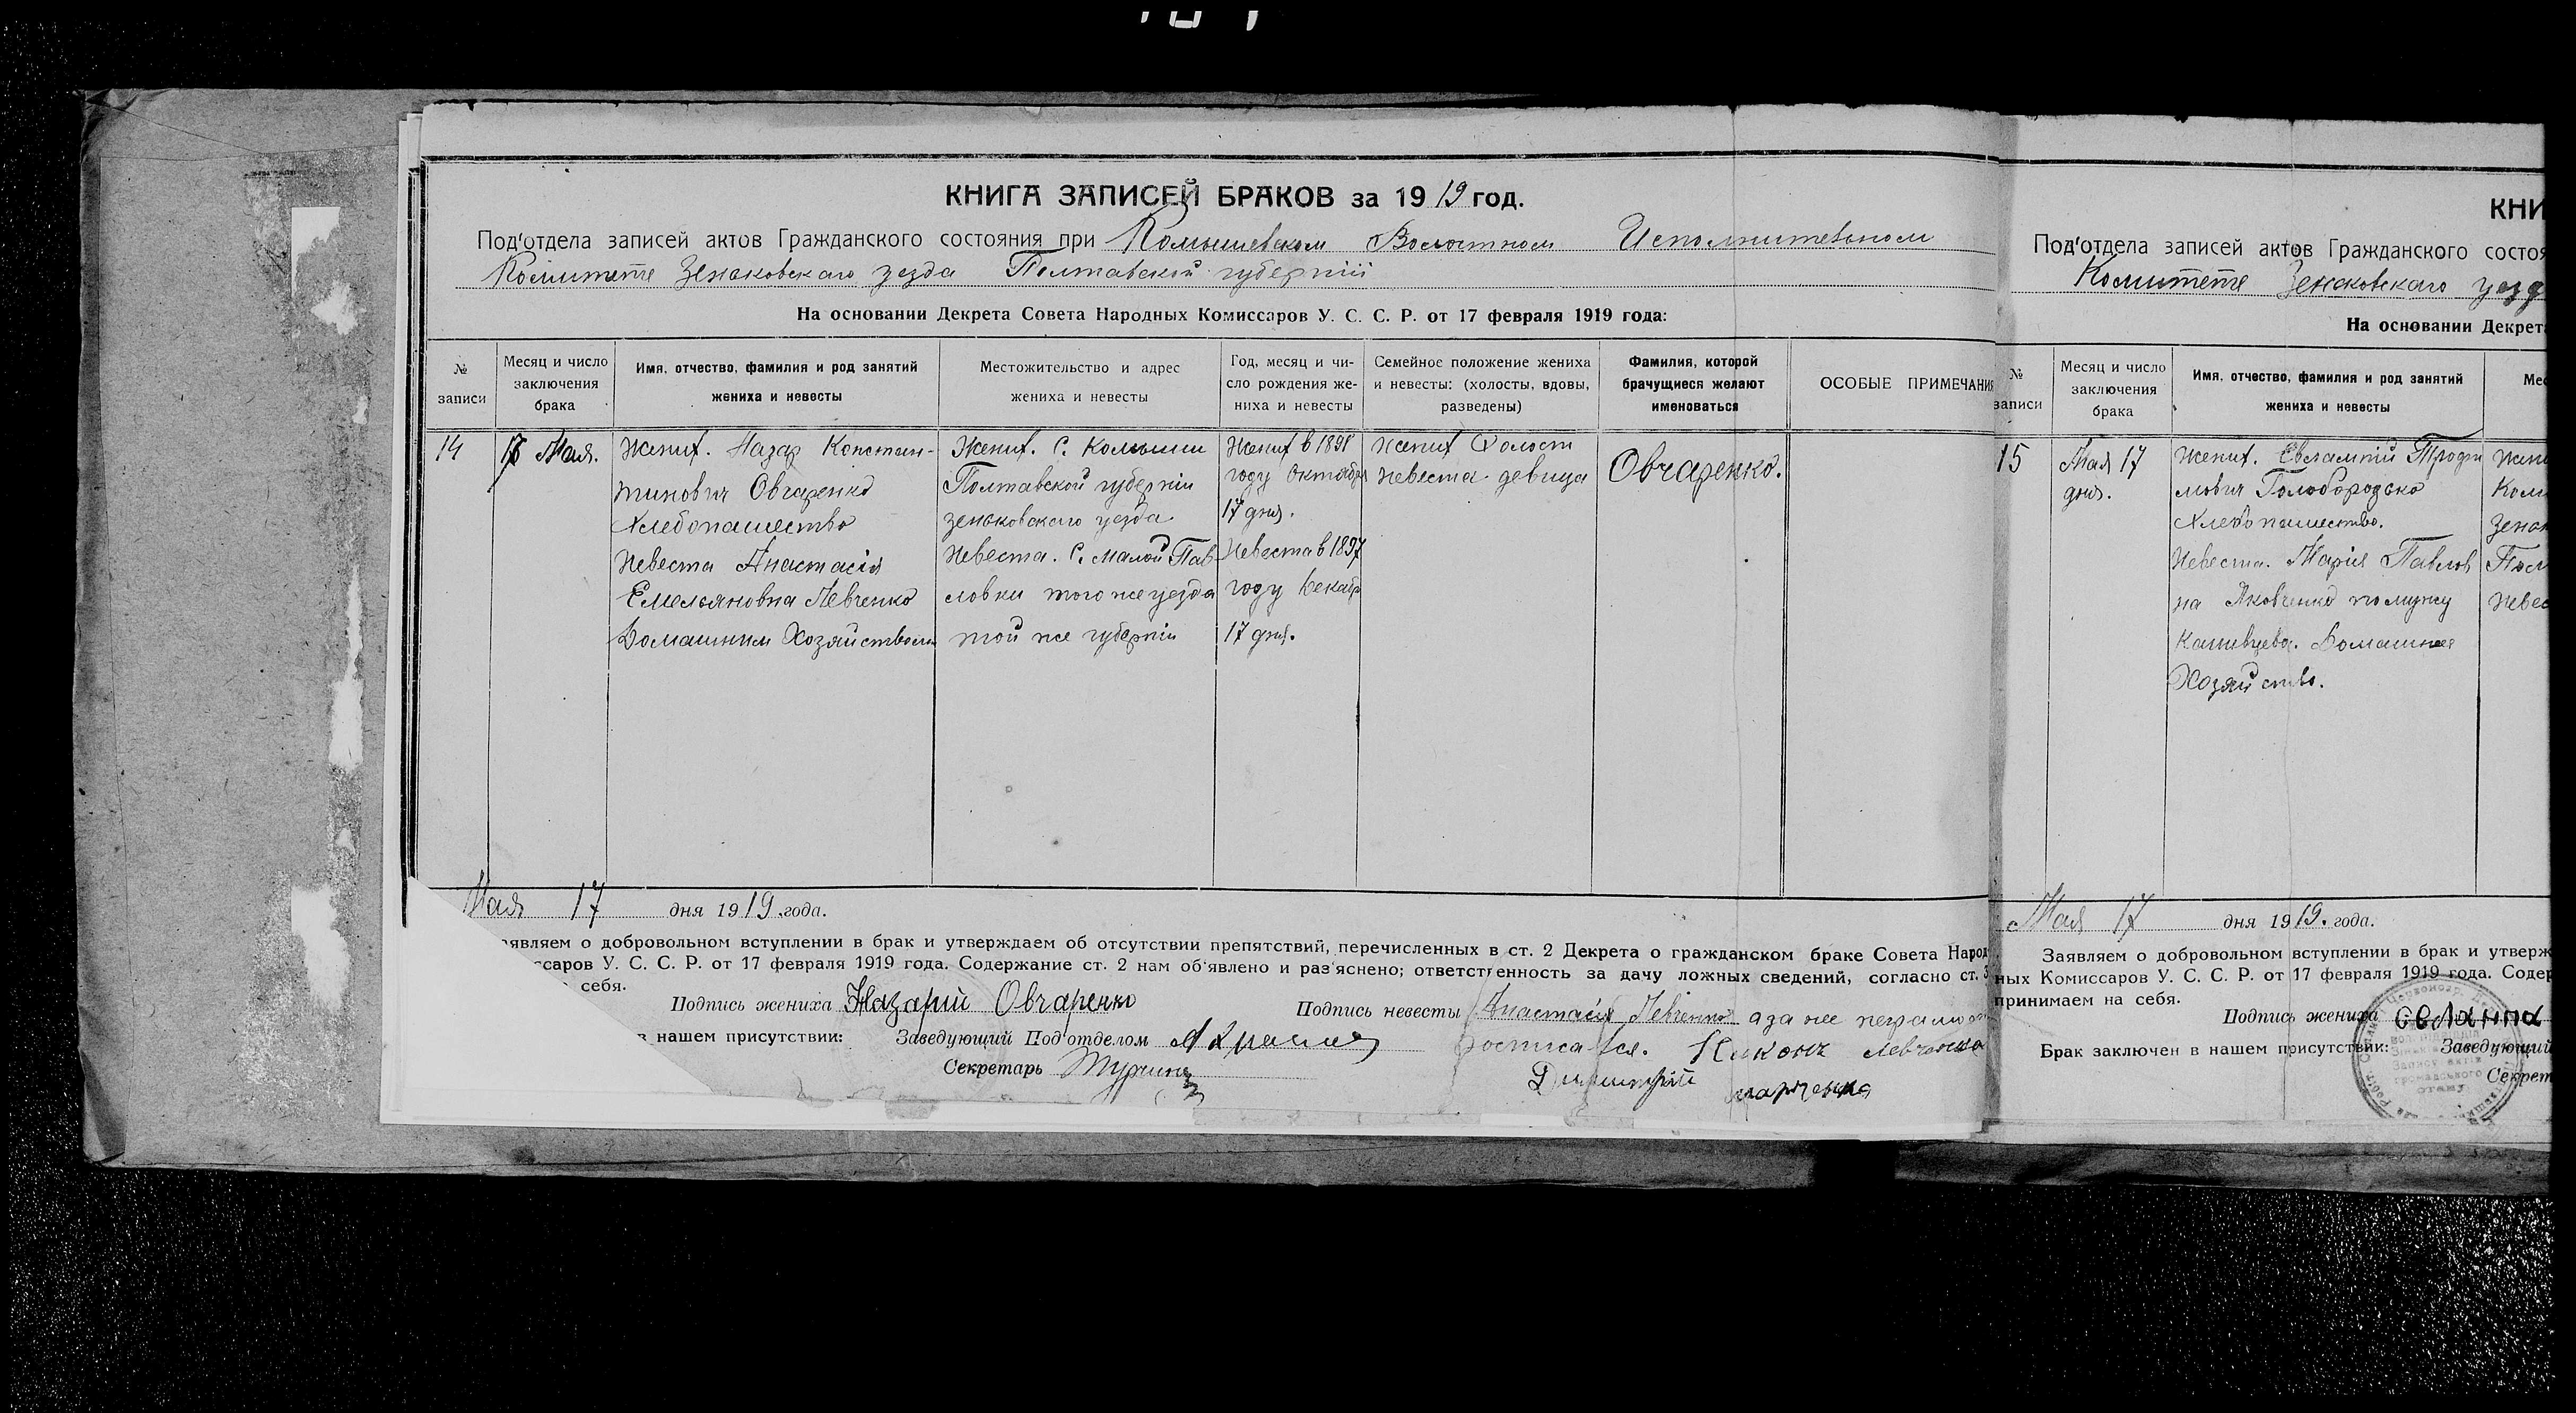 КНИГА ЗАПИСЕЙ БРАКОВ за 1919 год.
Под'отдела записей актов Гражданского состояния при Комышевском Волостном Исполнительном
Комитете Зеньковскаго уезда Полтавской губернiи
На основании Декрета Совета Народных Комиссаров У. С. С. Р. от 17 февраля 1919 года:
№ записи
Месяц и число заключения брака
Имя, отчество, фамилия и род занятий жениха и невесты
Местожительство и адрес жениха и невесты
Год, месяц и число рождения жениха и невесты
Семейное положение жениха и невесты: (холосты, вдовы, разведены)
Фамилия, которой брачущиеся желают именоваться
ОСОБЫЕ ПРИМЕЧАНИЯ
14
17 Мая.
Жених. Назар Констан-
тинович Овчаренко
Хлебопашество
Невеста Анастасія
Емельяновна Левченко
Домашним Хозяйством
Жених. С. Комыши
Полтавской губернiи
зеньковскаго уезда
Невеста. С. Малой Пав-
ловки того же уезда
той же губернiи
Жених в 1898
году Октября
17 дня.
Невеста в 1897
году Декабр
17 дня.
Жених Холост
Невеста девица
Овчаренко.
Мая 17 дня 1919 года.
аявляем о добровольном вступлении в брак и утверждаем об отсутствии препятствий, перечисленных в ст. 2 Декрета о гражданском браке Совета Народ
ссаров У. С. С. Р. от 17 февраля 1919 года. Содержание ст. 2 нам об'явлено и раз'яснено; ответственность за дачу ложных сведений, согласно ст. 3
себя.
Подпись жениха Назарій Овчаренко
Подпись невесты Анастасія Левченко а за нее неграмотн
в нашем присутствии: Заведующий Под'отделом
росписался. Никонъ Левченко
Секретарь
Димитрій Марченко
КНИ
Под'отдела записей актов Гражданского состоя
Комитете Зеньковскаго уезд
На основании Декрета
№ записи
Месяц и число заключения брака
Имя, отчество, фамилия и род занятий жениха и невесты
Мес
15
Мая 17
дня.
Жених. Евлампій Трофи
мович Голобородько
Хлебопашество.
Невеста. Марія Павлов
на Яковченко по мужу
Домашнее
Хозяйство.
Жени
Ком
Зеньк
Пол
Невес
Мая 17 дня 1919. года.
Заявляем о добровольном вступлении в брак и утверж
ных Комиссаров У. С. С. Р. от 17 февраля 1919 года. Содер
принимаем на себя.
Подпись жениха Овланпа
Брак заключен в нашем присутствии: Заведующий
Секрет